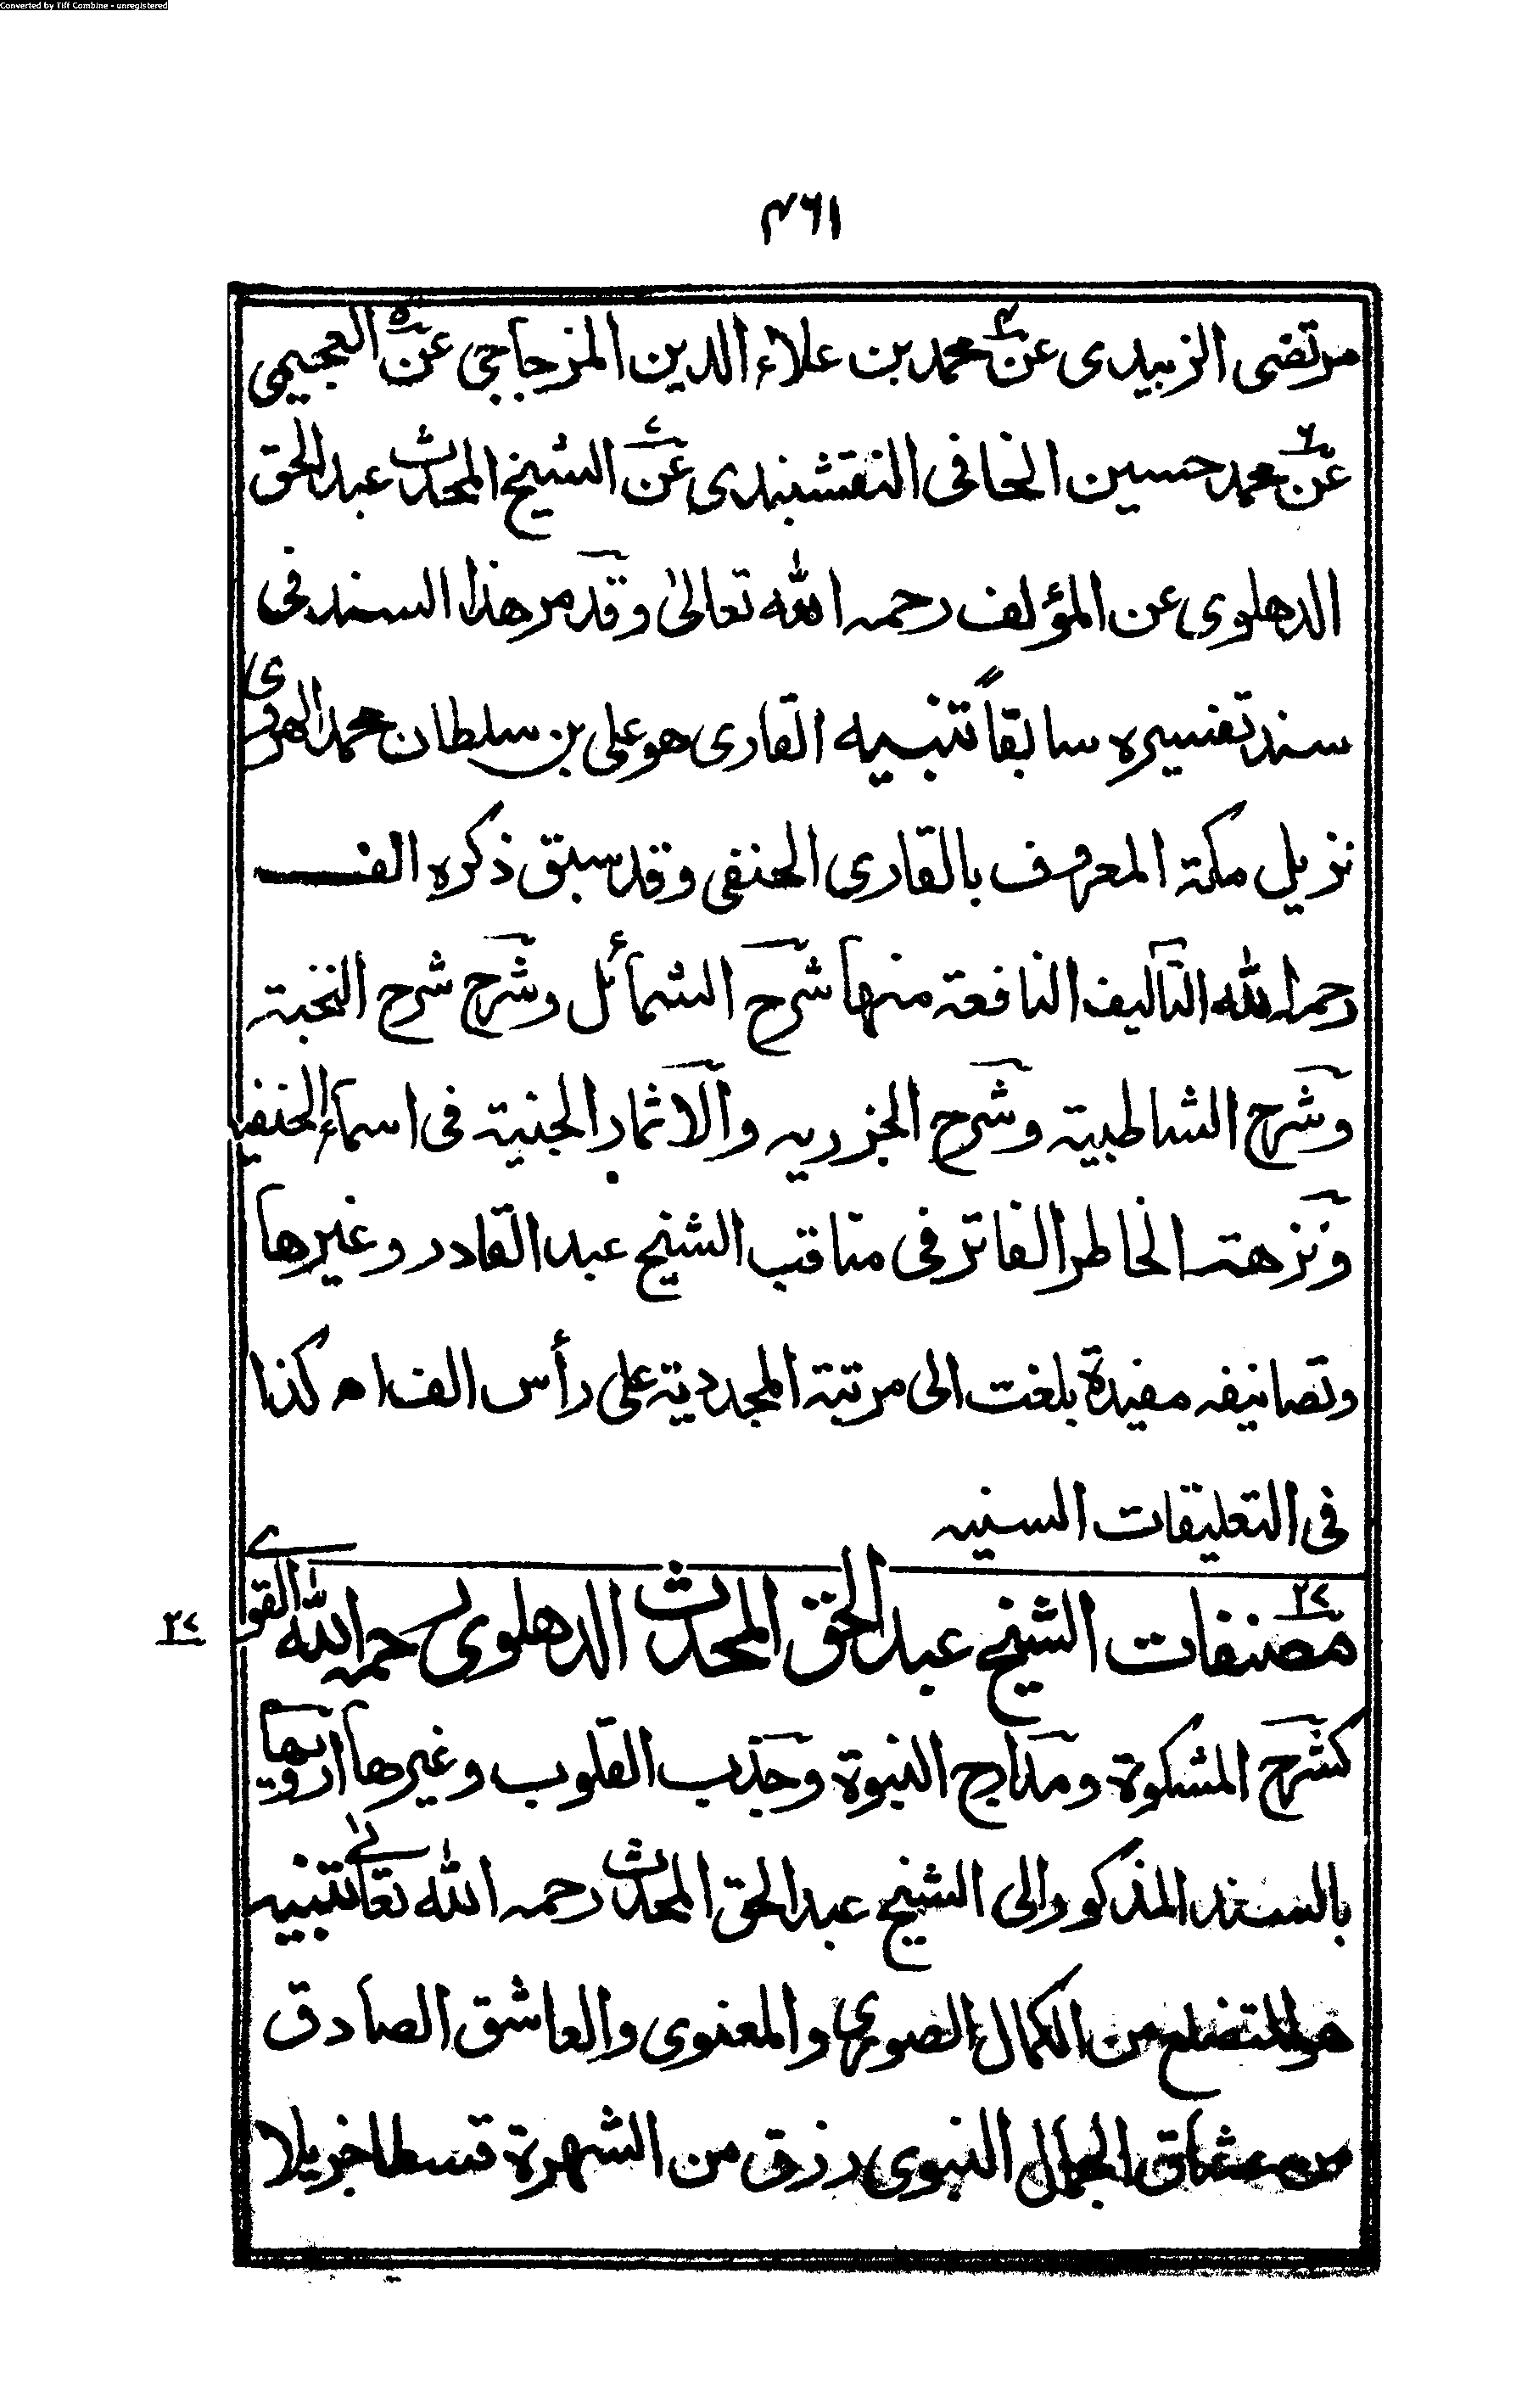 Converted by Tiff Combine - unregistered
۴۶۱
مرتضى الزبيدى عن۴ محمد بن علاء الدين المزجاجي عن۵ العجيمي
عن۶ محمد حسين الخافى النقشبندى عن۷ الشيخ المحدث عبد الحق
الدهلوى عن المؤلف رحمه الله تعالىٰ وقد مر هذا السند فى
سند تفسيره سابقاً تنبيه القارى هو على بن سلطان محمد الهروى
نزيل مكة المعروف بالقارى الحنفى وقد سبق ذكره الف
رحمه الله التآليف النافعة منها شرح الشمائل وشرح شرح النخبة
وشرح الشاطبية وشرح الجزريه والاثمار الجنية فى اسماء الحنفية
ونزهة الخاطر الفاتر فى مناقب الشيخ عبد القادر وغيرها
وتصانيفه مفيدة بلغت الى مرتبة المجددية على رأس الف اه كذا
فى التعليقات السنيه
۲۷
مصنفات الشيخ عبد الحق المحدث الدهلوى رحمه الله القوى
۲۷
كشرح المشكوة ومدارج النبوة وجذب القلوب وغيرها ارويها
بالسند المذكور الى الشيخ عبد الحق المحدث رحمه الله تعالىٰ تنبيه
هو المتضلع من الكمال الصورى والمعنوى والعاشق الصادق
من عشاق الجمال النبوى رزق من الشهرة قسطا جزيلا